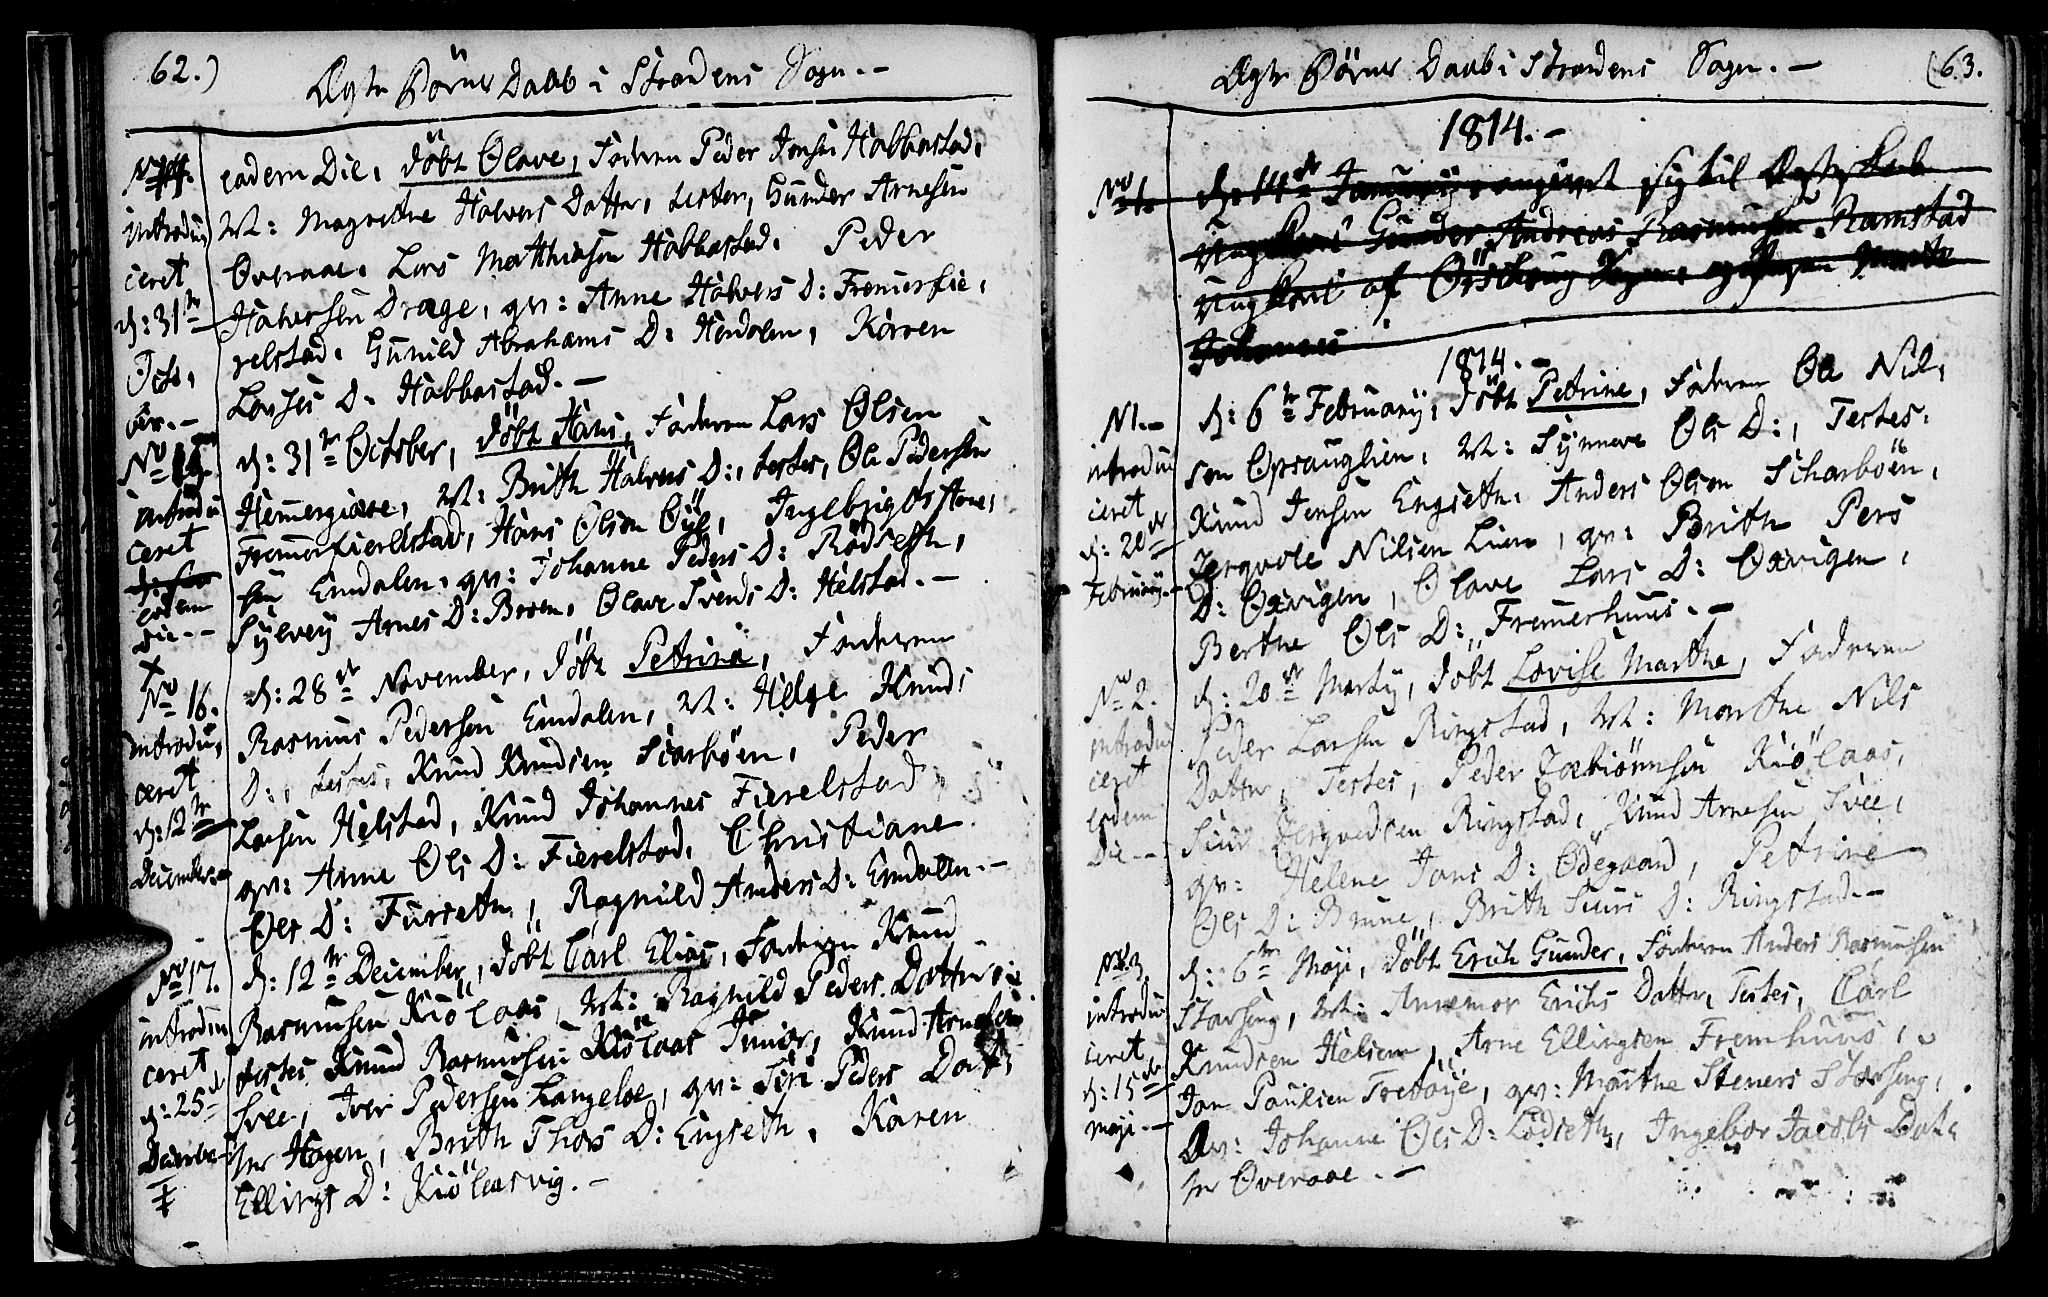 62.)
Ægte Börns Daab i Strandens Sogn.-
eadem Die, döbt Olave, Faderen Peder Jonsen Habbestad,
M: Magrethe Halvers Datter, testes, Gunder Arnesen
Overaae, Lars Matthiasen Habbestad, Peder
Halversen Drage, qv: Anne Halvers D: Fremerfie,
relstad, Gunild Abrahams D: Herdalen, Karen
Larses D. Habbestad.-
introdu,
ceret
d: 31te
Octo,
ber.-
d: 31te October, döbt Hans, Faderen Lars Olsen
Hemergiære, M: Brith Halvers D:, testes, Ole Pedersen
Fremerfierelstad, Hans Olsen Øye, Ingebrigt
sen Emdalen, qv: Johanne Peders D: Rödseth,
Sylvey Arnes D: Broen, Olave Svends D: Helstad.-
introdu
ceret
eodem
Die.-
d: 28de November, döbt Petrine, Faderen
Rasmus Pedersen Emdalen, M: Helge Knuds
D:, testes, Knud Knudsen Scarböen, Peder
Larsen Helstad, Knud Johannes Fierelstad,
qv: Anne Ols D: Fierelstad, Christiane
Ols D: Furseth, Ragnild Anders D: Emdalen.-
No 16.
introdu,
ceret
d: 12te
December.-
d: 12te December, döbt Carl Elias, Faderen Knud
Rasmusen Kiölaas, M: Ragnild Peders Datter,
testes Knud Rasmusen Kiölaas Junior, Knud Arnesen
Svee, Iver Pedersen Langeloe, qv: Siri Peders Dat,
ter Hagen, Brith Thors D: Engseth, Karen
Ellings D: Kiölaasvig.-
No 17.
introdu
ceret
d: 25de
Decembe
(63.
Ægte Börns Daab i Strandens Sogn.-
1814.-
No 1. d: 14de January, angivet sig til Ægteskab
Ungkarl Gunder Andreas Rasmusen Ramstad
Ungkarl af Örschoug Sogn, og Pigen Marte
Johannes
1814.-
N1.-
introdu
ceret
d: 20de
February.-
d: 6te February, döbt Petrine, Faderen Ole Nil,
sen Opsauglien, M: Synneve Ols D:, Testes:
Knud Jensen Engseth, Anders Olsen Scharböen,
Jergvole Nilsen Lien, qv: Brith Pers
D: Oxvigen, Olave Lars D: Oxvigen,
Berthe Ols D: Fremerhuus.-
No 2.
introdu
ceret
eodem
Die.-
d: 20de Marty, döbt Lovise Marthe, Faderen
Peder Larsen Ringstad, M: Marthe Nils
Datter, Testes, Peder Torbiörnsen Kiölaas,
Siur Jergvedsen Ringstad, Knud Arnesen Svee,
qv: Helene Jons D: Ödegaard, Petrine
Ols D: Brune, Brith Siurs D: Ringstad.-
No 3.
introdu
ceret
d: 15de
Maji.-
d: 6te Maji, döbt Erich Gunder, Faderen Anders Rasmusen
Storseng, M: Annemor Erichs Datter, Testes, Carl
Knudsen Helsem, Arne Ellingsen Fremhuus,
Jon Paulsen Tretöye, qv: Marthe Steners Storseng,
qv: Johanne Ols D: Lödseth, Ingebor Jacobs Dat,
ter Overaae.-